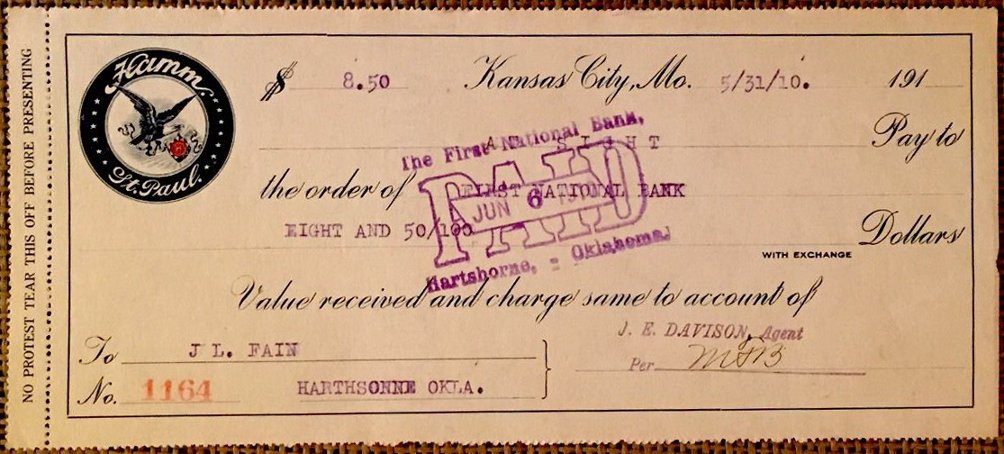 NO PROTEST TEAR THIS OFF BEFORE PRESENTING
Hamm
St. Paul.
$ 8.50 Kansas City, Mo. 5/31/10. 191
AT SIGHT Pay to
the order of FIRST NATIONAL BANK
EIGHT AND 50/100 Dollars
WITH EXCHANGE
The First National Bank,
PAID
JUN 6 1910
Hartshorne, - Oklahoma.
Value received and charge same to account of
J. E. DAVISON, Agent
To J L. FAIN Per
No. 1164 HARTHSONNE OKLA.